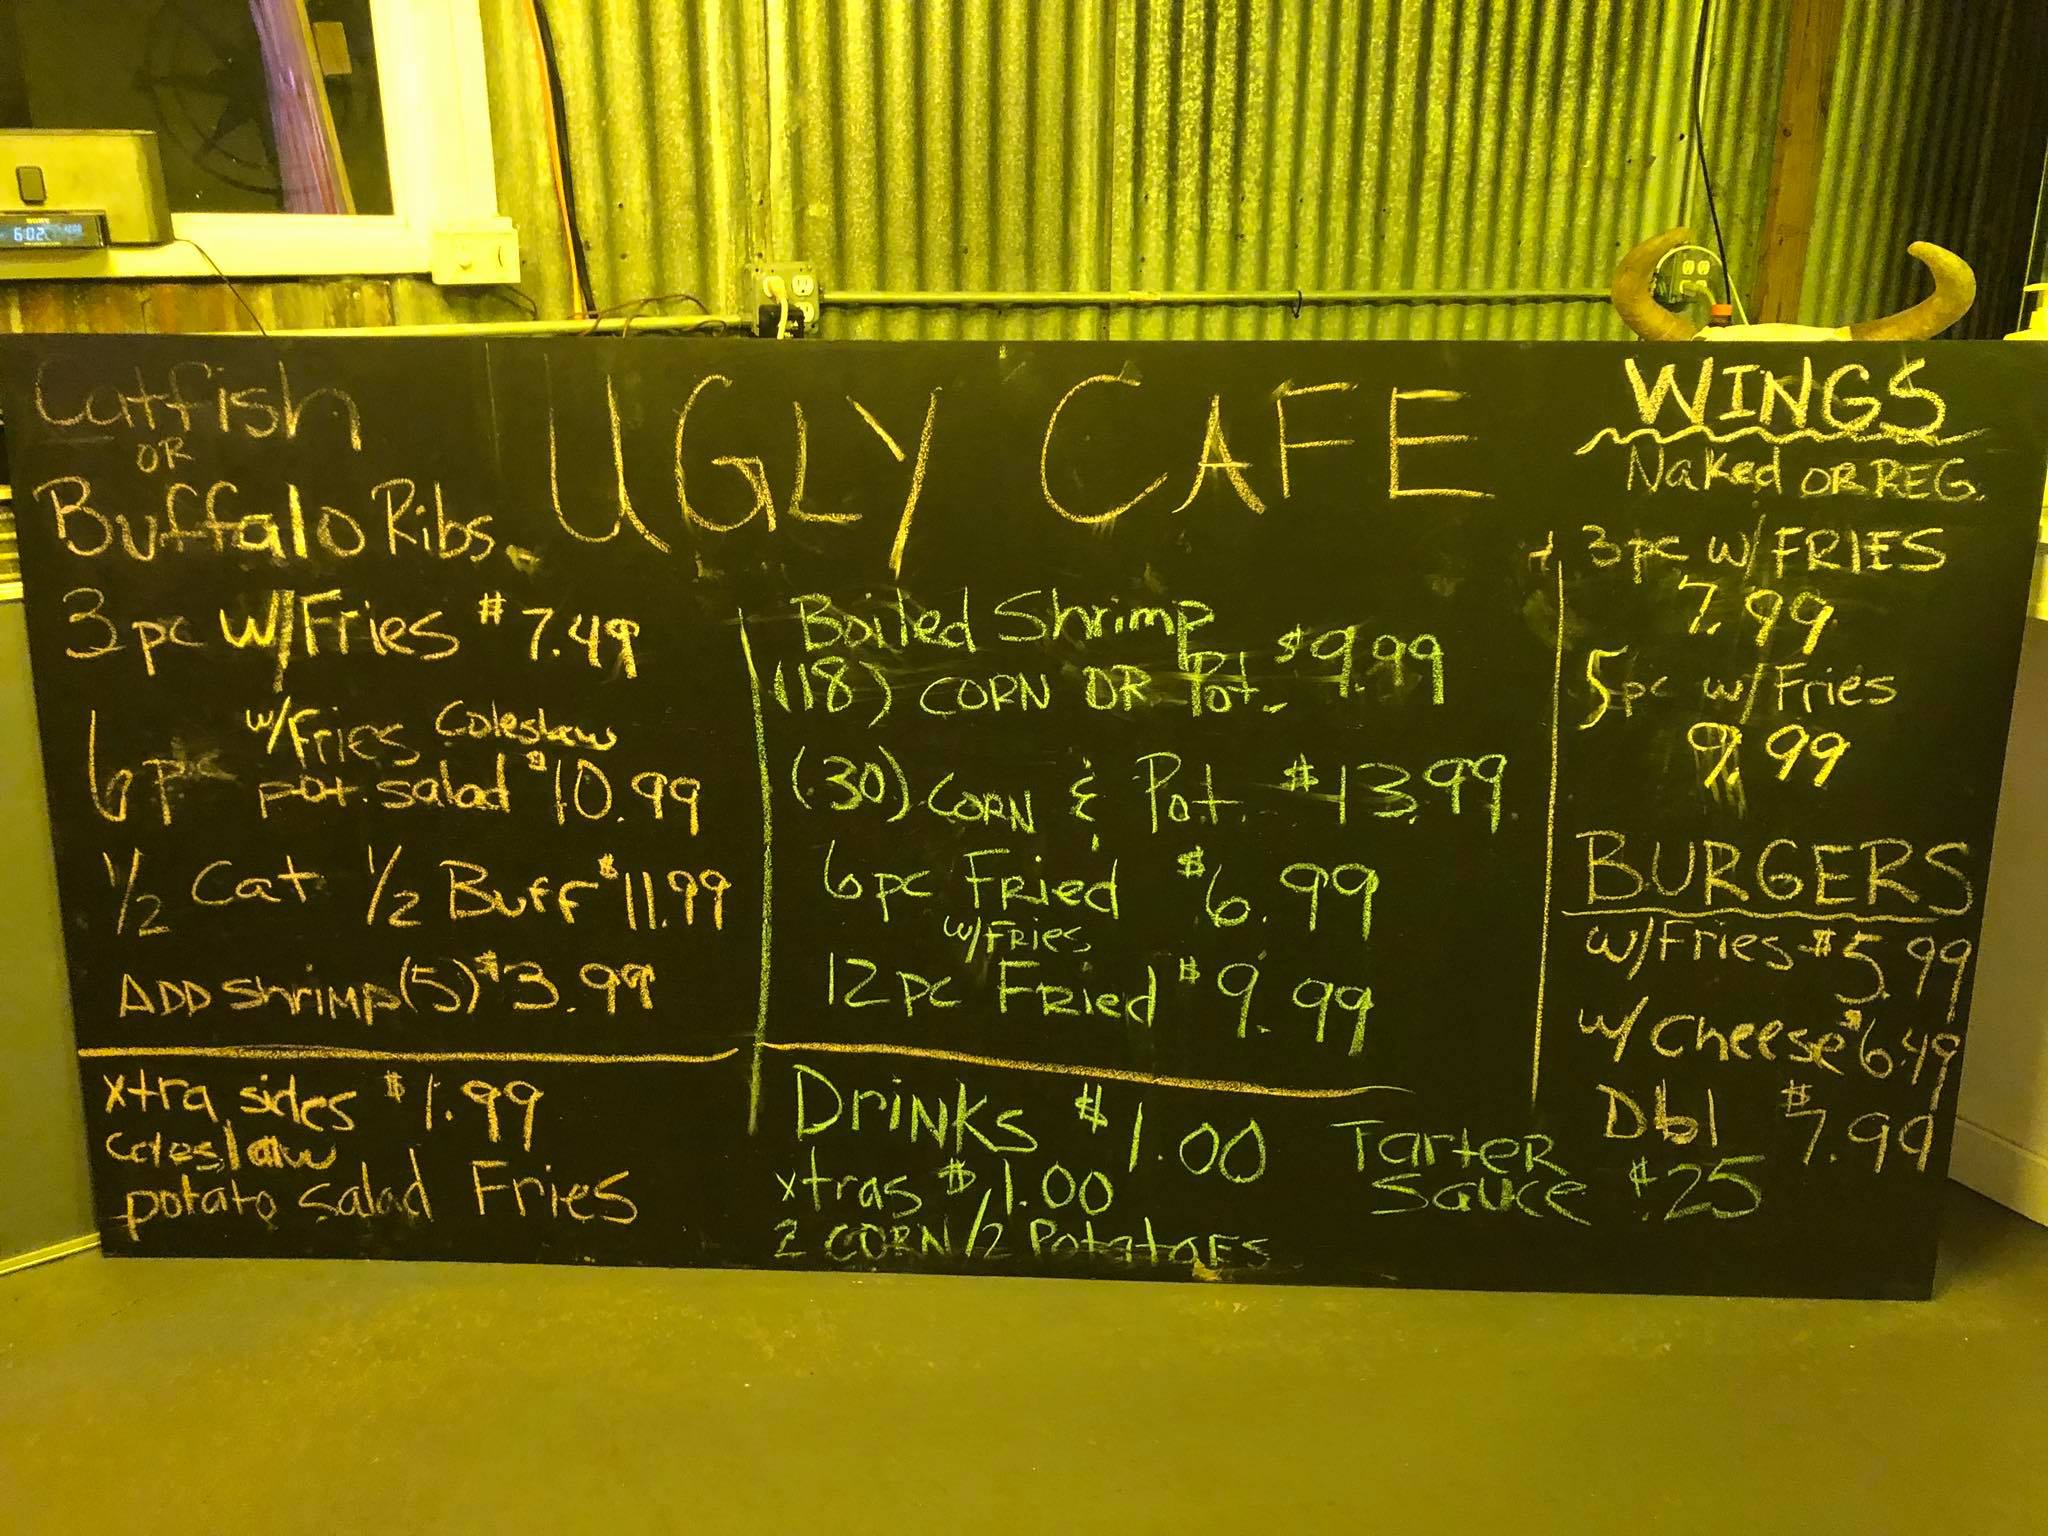 SONY
6:02
UGLY CAFE
Catfish
OR
Buffalo Ribs
3pc w/Fries $7.49
w/Fries Coleslaw
6pc pot. salad $10.99
1/2 Cat 1/2 Buff $11.99
ADD Shrimp (5) $3.99
xtra sides $1.99
coleslaw
potato salad Fries
Boiled Shrimp
(18) CORN OR Pot. $9.99
(30) CORN & Pot. $13.99
6pc FRied $6.99
w/FRies
12pc FRied $9.99
DriNKS $1.00
xtras $1.00
2 CORN/2 PotatoES
TartER
Sauce $.25
WINGS
Naked OR REG.
3pc w/FRIES
7.99
5pc w/Fries
9.99
BURGERS
w/Fries $5.99
w/Cheese $6.49
Dbl $7.99